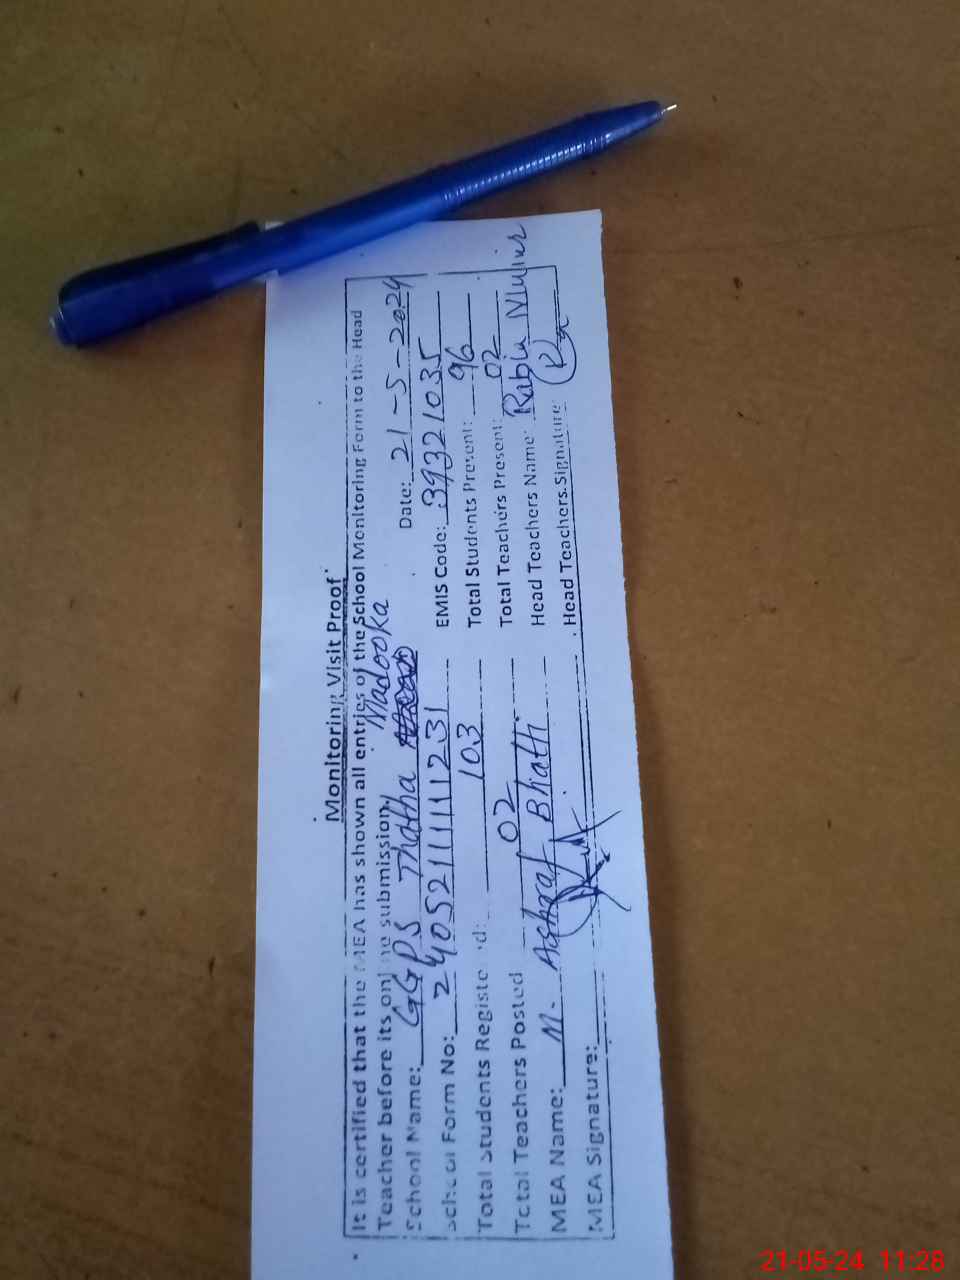 Monitoring Visit Proof
It is certified that the MEA has shown all entries of the School Monitoring Form to the Head
Teacher before its online submission.
School Name: GGPS Thatha Madooka Date: 21-5-2024
School Form No: 240521111111231 EMIS Code: 39321035
Total Students Registered: 103 Total Students Present: 96
Total Teachers Posted 02 Total Teachers Present: 02
MEA Name: M. Ashraf Bhatti Head Teachers Name: Rabia
MEA Signature: Head Teachers Signature:
21-05-24 11:28